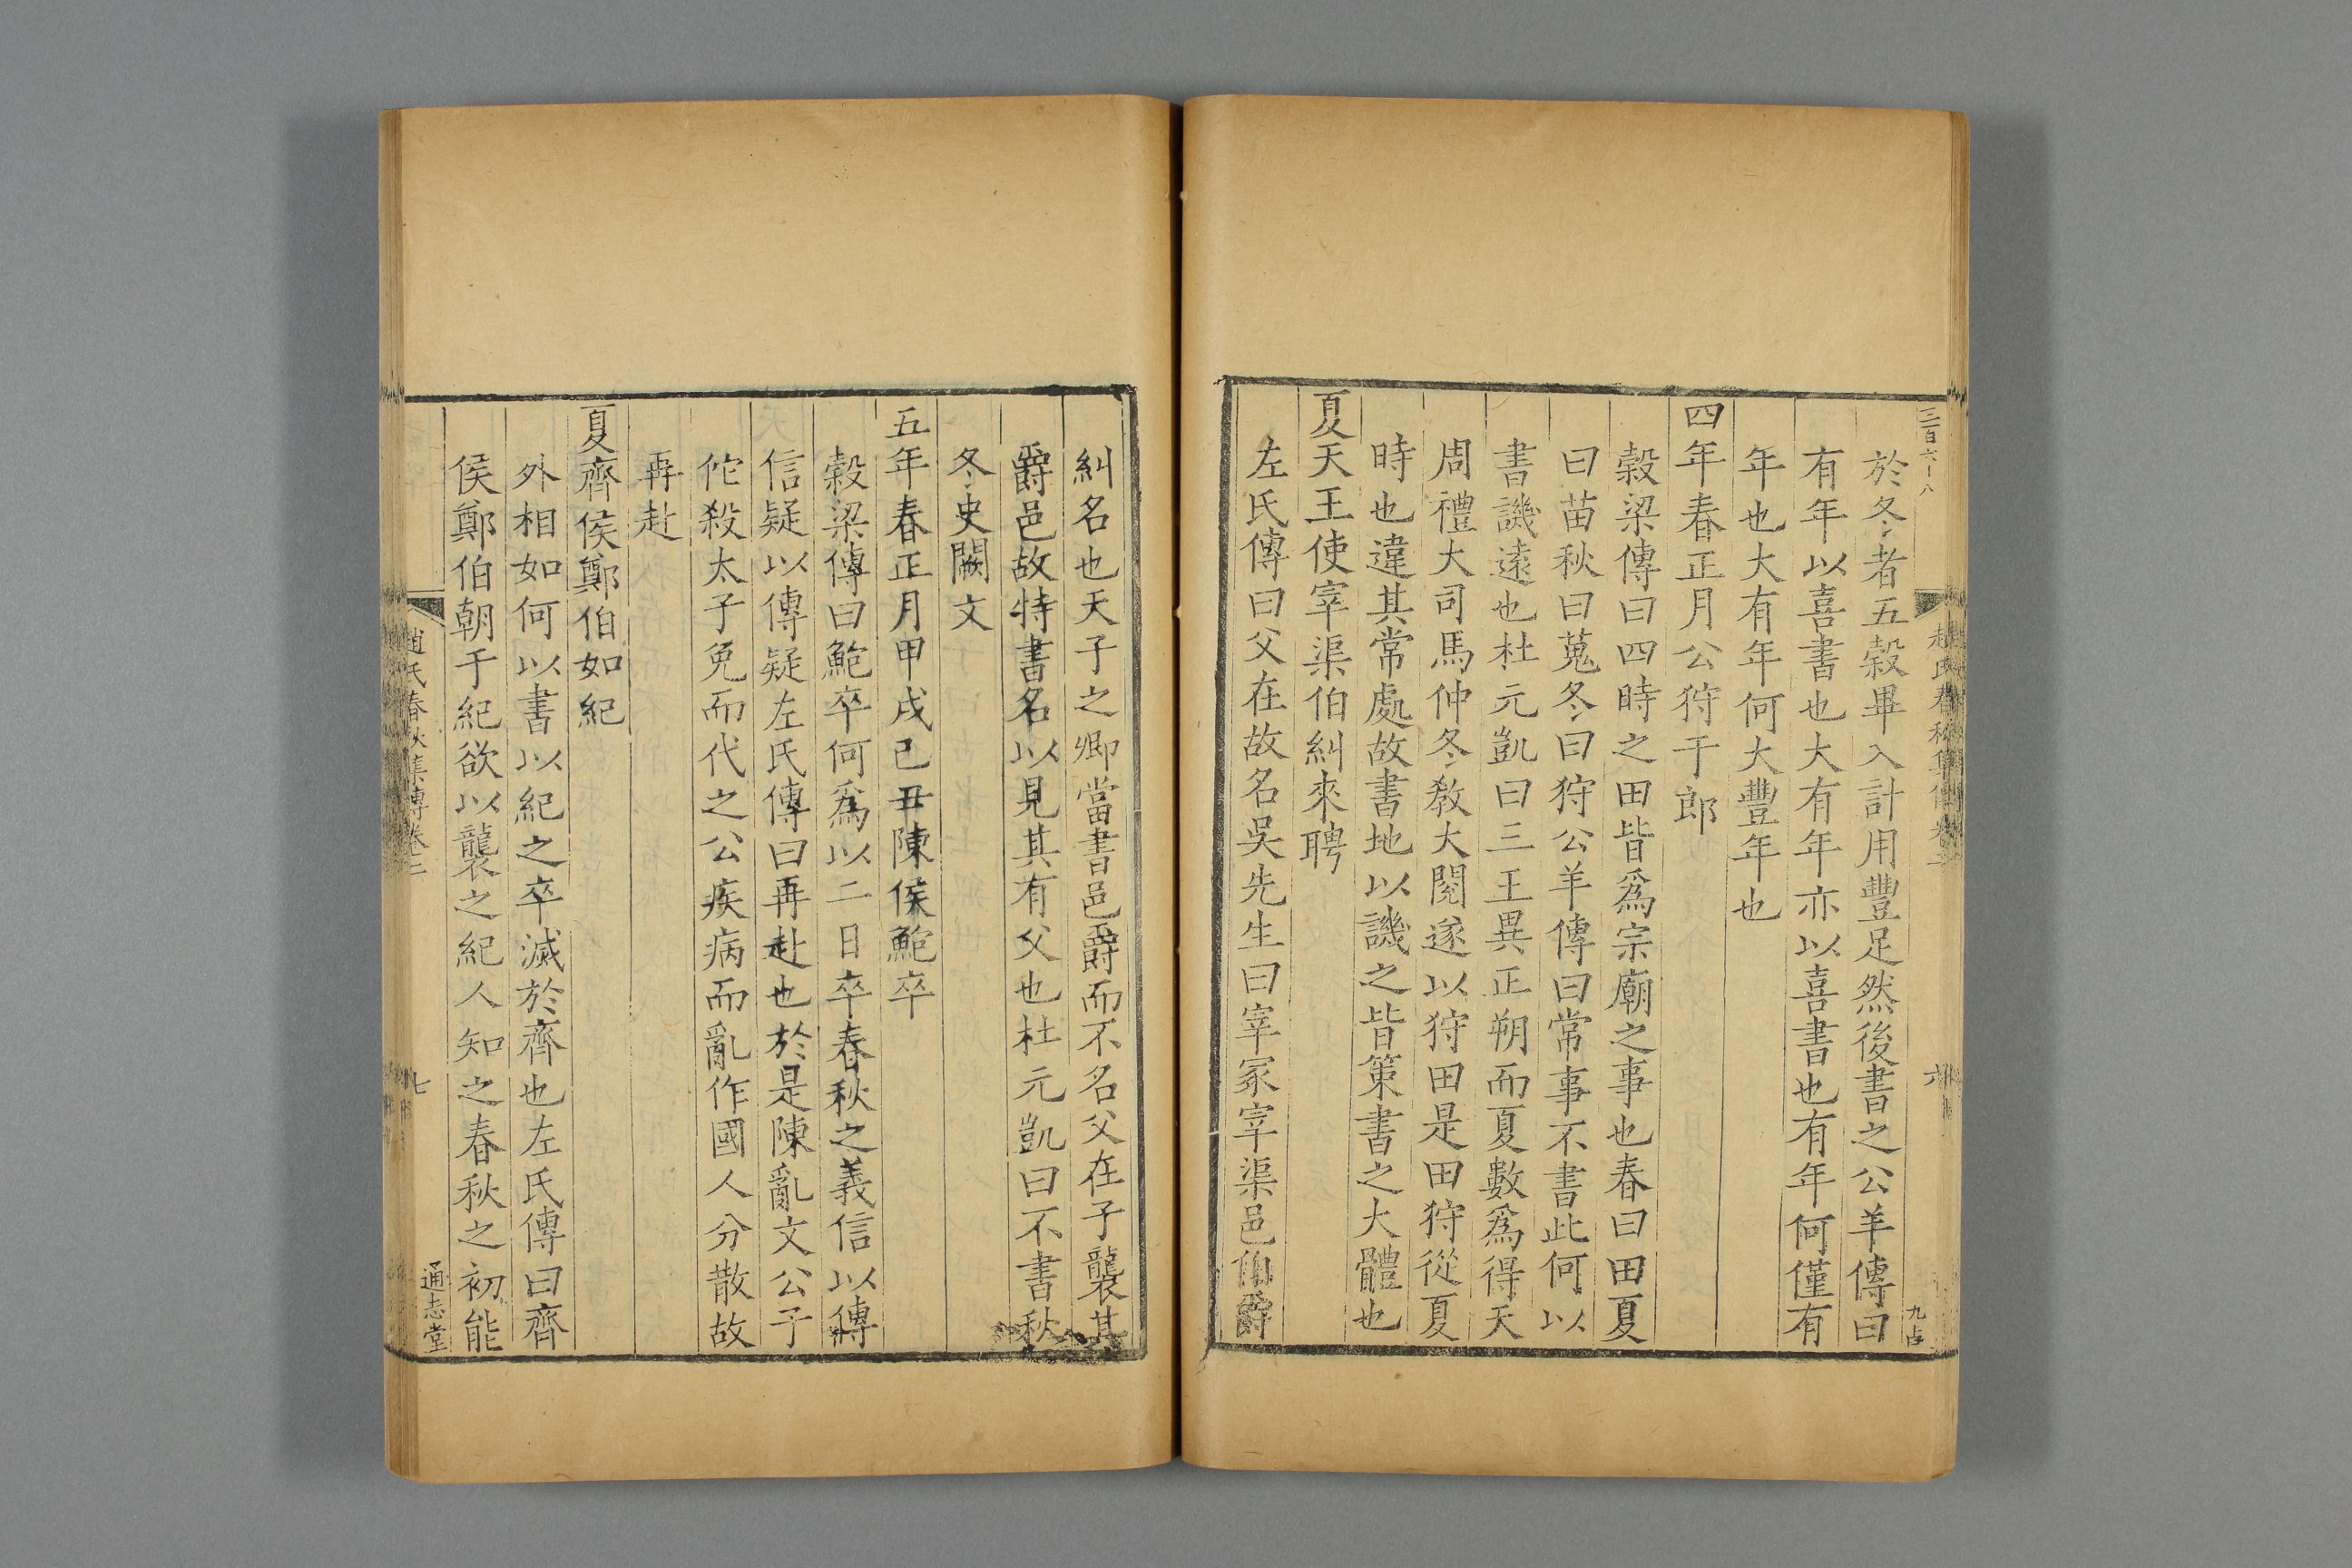 三百六十八
趙氏春秋集傳卷二
六
於冬冬者五穀畢入計用豐足然後書之公羊傳曰
有年以喜書也大有年亦以喜書也有年何僅有
年也大有年何大豐年也
四年春正月公狩于郎
穀梁傳曰四時之田皆爲宗廟之事也春曰田夏
曰苗秋曰蒐冬曰狩公羊傳曰常事不書此何以
書譏遠也杜元凱曰三王異正朔而夏數爲得天
周禮大司馬仲冬教大閱遂以狩田是田狩從夏
時也違其常處故書地以譏之皆策書之大體也
夏天王使宰渠伯糾來聘
左氏傳曰父在故名吳先生曰宰冢宰渠邑伯爵
糾名也天子之卿當書邑爵而不名父在子襲其
爵邑故特書名以見其有父也杜元凱曰不書秋
冬史闕文
五年春正月甲戌己丑陳侯鮑卒
穀梁傳曰鮑卒何爲以二日卒春秋之義信以傳
信疑以傳疑左氏傳曰再赴也於是陳亂文公子
佗殺太子免而代之公疾病而亂作國人分散故
再赴
夏齊侯鄭伯如紀
外相如何以書以紀之卒滅於齊也左氏傳曰齊
侯鄭伯朝于紀欲以襲之紀人知之春秋之初能
趙氏春秋集傳卷二
七
通志堂